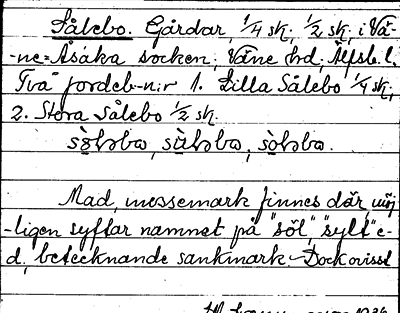 Sålebo. Gårdar, 1/4 sk, 1/2 sk. i Vä-
-ne-Åsaka socken, Väne hd, Älfsb. l.
Två jordeb-n:r 1. Lilla Sålebo 1/4 sk,
2. Stora Sålebo 1/2 sk.
Mad, mossemark finnes där, möj
-ligen syftar namnet på "söl", "sylt" e-
d., betecknande sankmark - Dock ovisst
1936